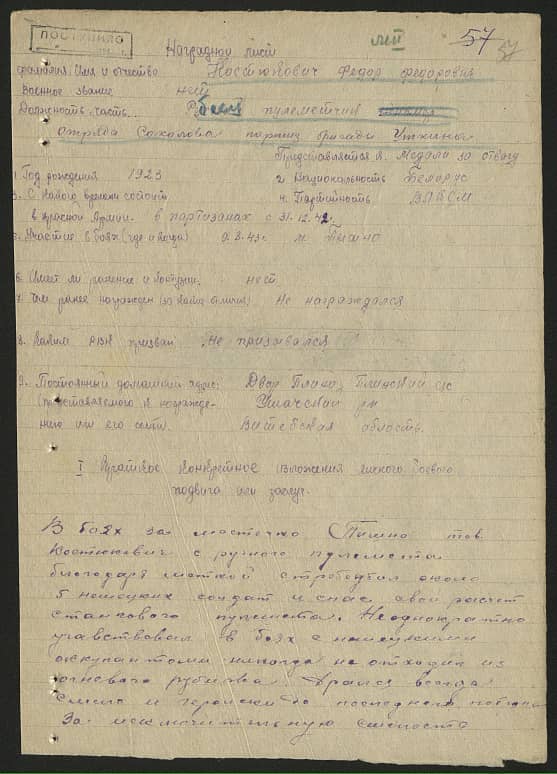 ПОСТУПИЛО
57 57
Наградной лист
Фамилия, Имя и отчество Костюкович Федор Федорович
Военное звание нет
Должность часть..
пулеметчик
отряда Соколова партиз бригады Уткина
Представляется к. Медали за отвагу
1. Год рождения 1923 2. Национальность Белорус
3. С какого времени состоит 4. Партийность ВЛКСМ
в Красной Армии. в партизанах с 31.12.42г
5. Участие в боях (где и когда) м. Пышно
6. Имеет ли ранение и контузии. нет
7. Чем ранее награжден (за какие отличия) Не награждался
8. Каким РВК призван Не призывался
9. Постоянный домашний адрес: Двор Плино, Плинский с/с
(представляемого к награжде- Ушачский р-н
нию или его семьи. Витебская область.
I Краткое конкретное изложения личного боевого
подвига или заслуг.
В боях за местечко Пышно тов.
Костюкович с ручного пулемета
благодаря меткой около
5 немецких солдат и спас свой расчет
станкового пулемета. Неоднократно
учавствовал в боях с немецкими
оккупантами никогда не отходил из
огневого рубежа. Дрался всегда
смело и геройски до последнего
За исключительную смелость